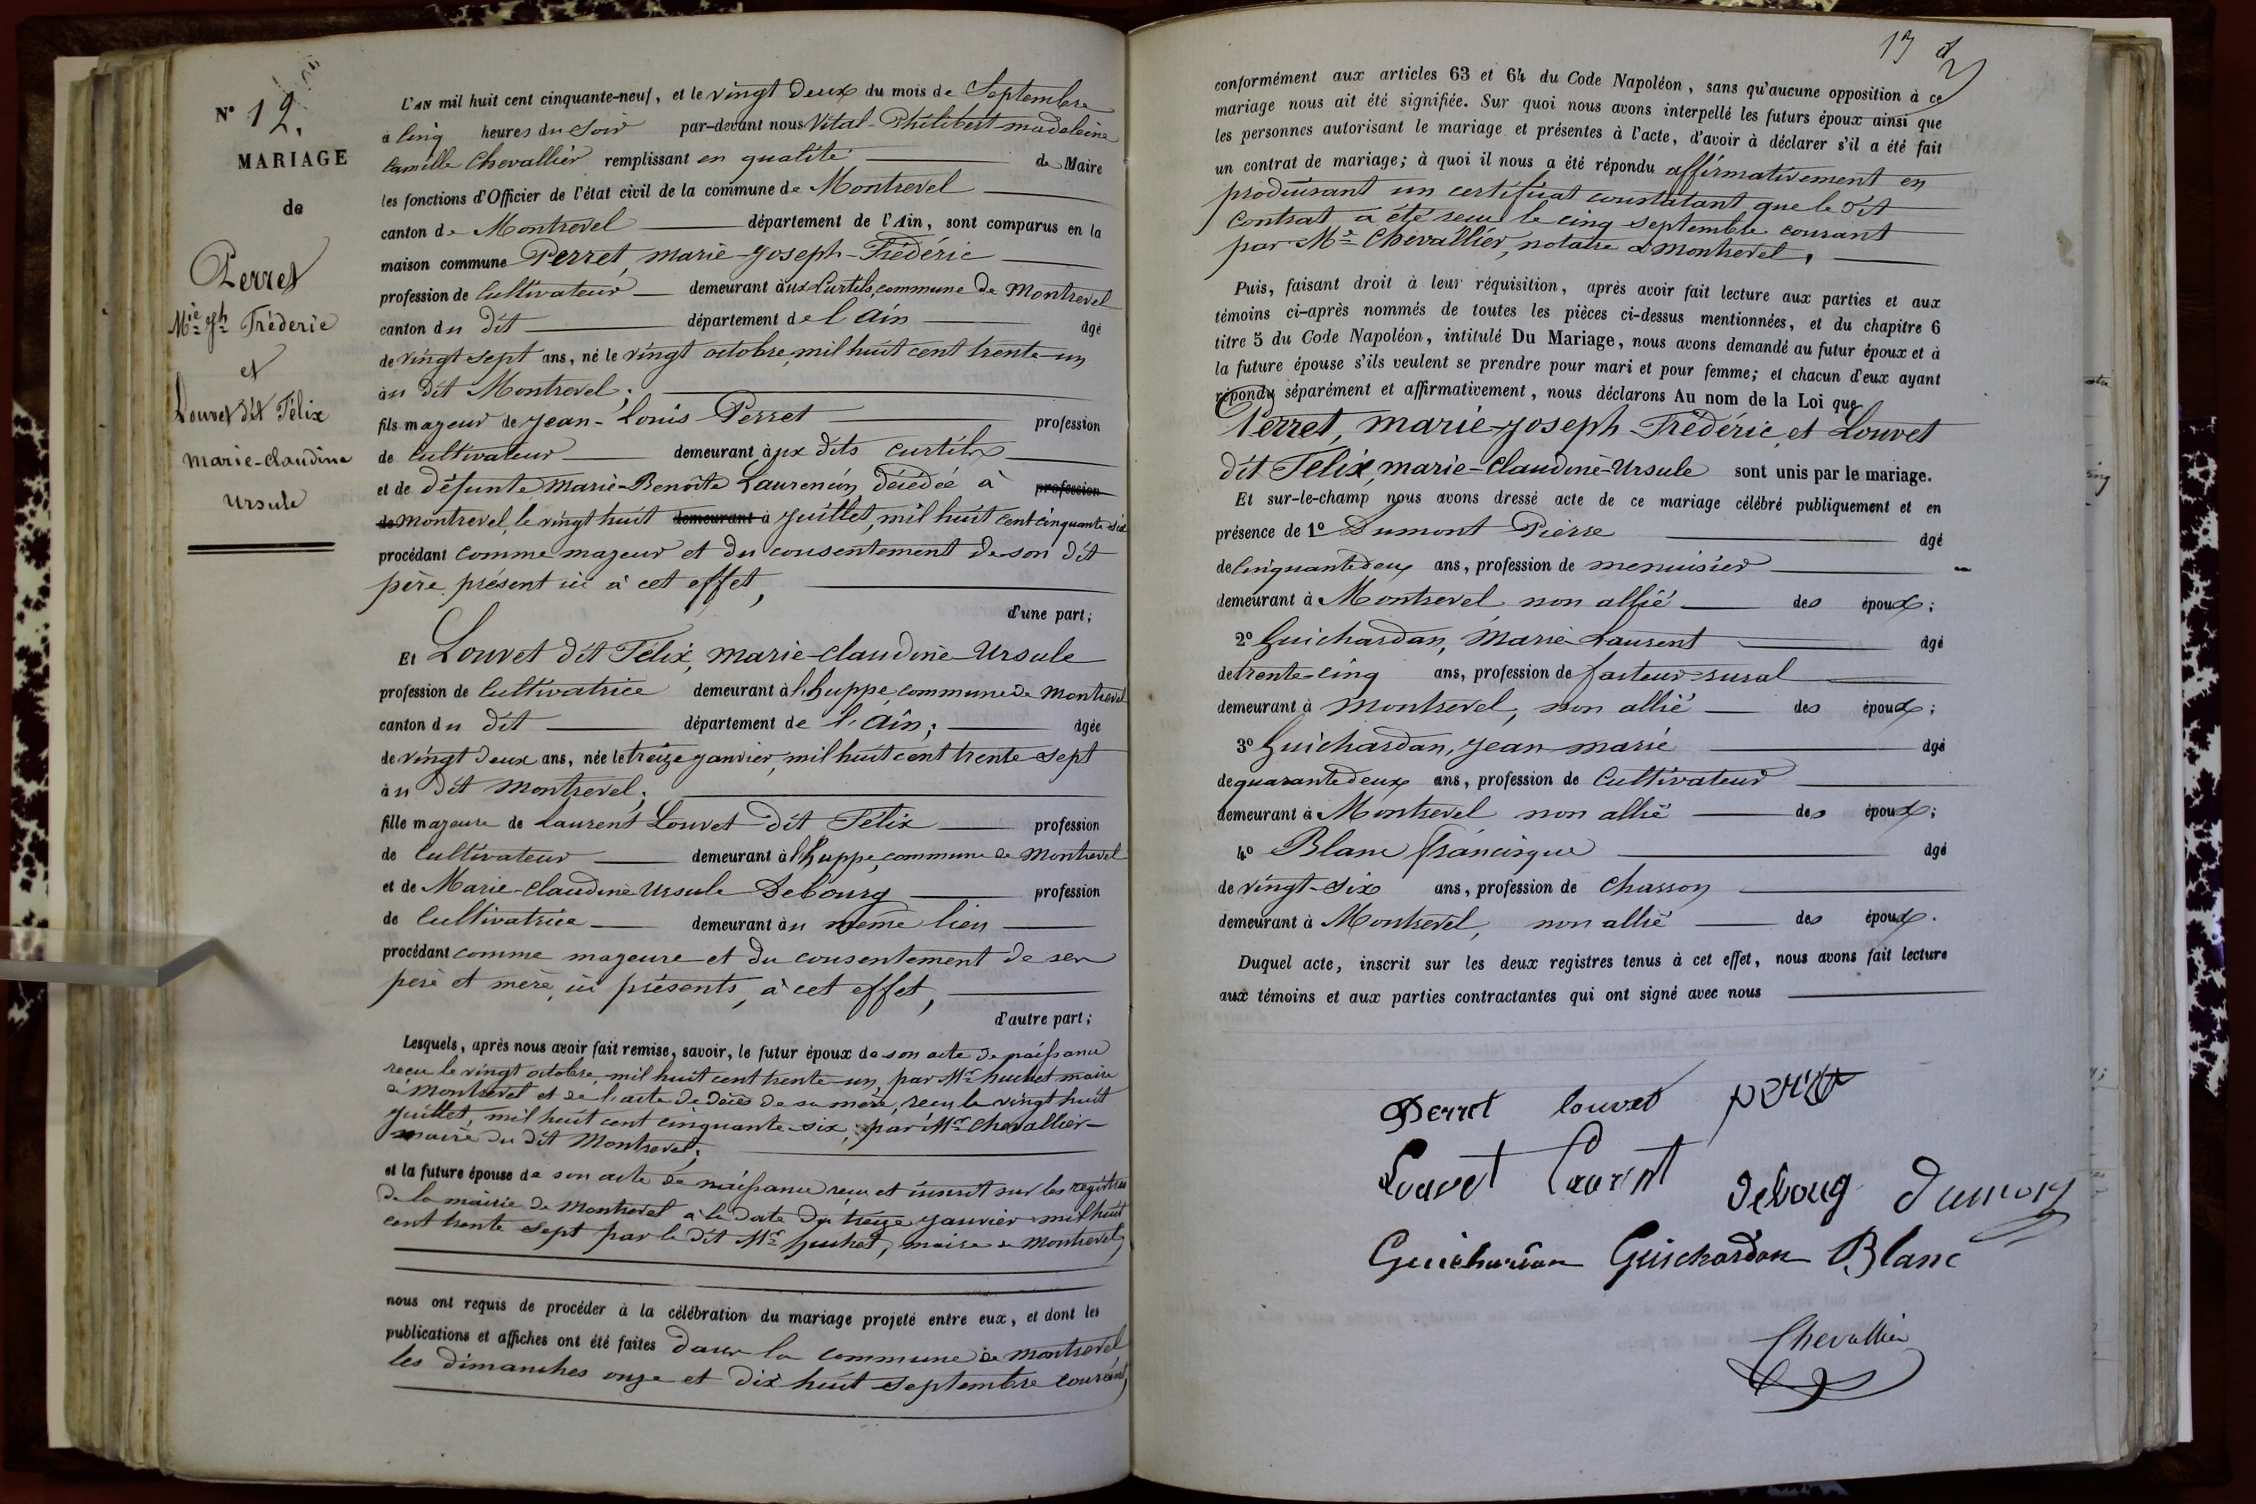 N° 12.
MARIAGE
de
Perret
Mie Jh Fréderic
et
Louvet dit Félix
marie-claudine
Ursule
L'AN mil huit cent cinquante-neuf, et le vingt deux du mois de Septembre
à cinq heures du soir par-devant nous Vital-Philibert-madeleine
Camille Chevallier remplissant en qualité de Maire
les fonctions d'Officier de l'état civil de la commune de Montrevel
canton de Montrevel département de l'Ain, sont comparus en la
maison commune Perret, marie-Joseph-Frédéric
profession de Cultivateur demeurant aux Curtils, commune de Montrevel
canton du dit département de l'Ain âgé
de vingt sept ans, né le vingt octobre, mil huit cent trente-un
au dit Montrevel;
fils majeur de Jean-Louis Perret profession
de Cultivateur demeurant aux dits Curtils
et de défunte Marie-Benoîte Laurencin, décédée à profession
de Montrevel, le vingt huit demeurant à Juillet, mil huit cent cinquante six
procédant comme majeur et du consentement de son dit
père présent ici à cet effet,
d'une part;
Et Louvet dit Félix, marie-claudine-Ursule
profession de Cultivatrice demeurant à l'huppe, commune de Montrevel
canton du dit département de l'Ain; âgée
de vingt deux ans, née le treize janvier, mil huit cent trente sept
au dit Montrevel;
fille majeure de Laurent Louvet dit Félix profession
de Cultivateur demeurant à l'huppe, commune de Montrevel
et de Marie-claudine Ursule Debourg profession
de Cultivatrice demeurant au même lieu
procédant comme majeure et du consentement de ses
père et mère, ici présents, à cet effet,
d'autre part;
Lesquels, après nous avoir fait remise, savoir, le futur époux de son acte de naissance
reçu le vingt octobre, mil huit cent trente-un, par Mr huchet maire
à Montrevel et de l'acte de décès de sa mère, reçu le vingt huit
Juillet, mil huit cent cinquante-six, par Mr Chevallier
maire du dit Montrevel;
et la future épouse de son acte de naissance reçu et inscrit sur les registres
de la mairie de Montrevel à la date du treize janvier mil huit
cent trente sept par le dit Mr huchet, maire à Montrevel,
nous ont requis de procéder à la célébration du mariage projeté entre eux, et dont les
publications et affiches ont été faites dans la commune de Montrevel
les dimanches onze et dix huit septembre courant,
13
conformément aux articles 63 et 64 du Code Napoléon, sans qu'aucune opposition à ce
mariage nous ait été signifiée. Sur quoi nous avons interpellé les futurs époux ainsi que
les personnes autorisant le mariage et présentes à l'acte, d'avoir à déclarer s'il a été fait
un contrat de mariage; à quoi il nous a été répondu affirmativement en
produisant un certificat constatant que le dit
Contrat a été reçu le cinq septembre courant
par Me Chevallier, notaire à Montrevel,
Puis, faisant droit à leur réquisition, après avoir fait lecture aux parties et aux
témoins ci-après nommés de toutes les pièces ci-dessus mentionnées, et du chapitre 6
titre 5 du Code Napoléon, intitulé Du Mariage, nous avons demandé au futur époux et à
la future épouse s'ils veulent se prendre pour mari et pour femme; et chacun d'eux ayant
répondu séparément et affirmativement, nous déclarons Au nom de la Loi que
Perret, marie-Joseph-Frédéric, et Louvet
dit Félix, marie-claudine-Ursule sont unis par le mariage.
Et sur-le-champ nous avons dressé acte de ce mariage célébré publiquement et en
présence de 1° Dumont Pierre âgé
de cinquante deux ans, profession de menuisier
demeurant à Montrevel non allié des époux;
2° Guichardan, Marie Laurent âgé
de trente-cinq ans, profession de facteur-rural
demeurant à Montrevel, non allié des époux;
3° Guichardan, Jean-marie âgé
de quarante deux ans, profession de Cultivateur
demeurant à Montrevel non allié des époux;
4° Blanc Francisque âgé
de vingt-six ans, profession de charron
demeurant à Montrevel, non allié des époux.
Duquel acte, inscrit sur les deux registres tenus à cet effet, nous avons fait lecture
aux témoins et aux parties contractantes qui ont signé avec nous
Perret louvet perret
Louvet Laurent deboug dumon
Guichardan Guichardan Blanc
Chevallier